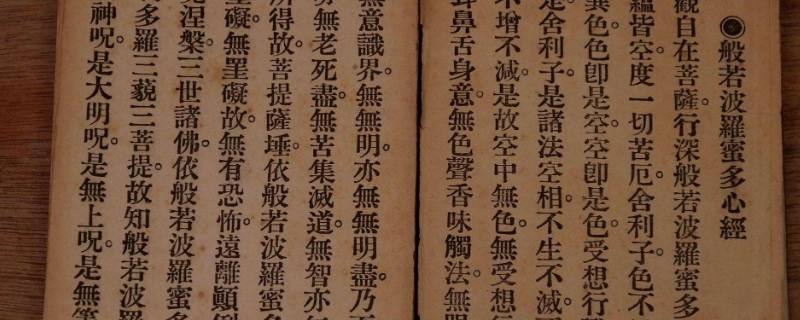 ◉般若波羅蜜多心經
觀自在菩薩。行深般若波羅蜜多
蘊皆空。度一切苦厄。舍利子。色不
異色。色卽是空。空卽是色。受想行
是。舍利子。是諸法空相。不生不滅。
不增不減。是故空中無色。無受想行
耳鼻舌身意。無色聲香味觸法。無眼
無意識界。無無明。亦無無明盡。乃
無老死盡。無苦集滅道。無智亦無
所得故。菩提薩埵。依般若波羅蜜多
罣礙。無罣礙故。無有恐怖。遠離顛倒
究涅槃。三世諸佛。依般若波羅蜜多
多羅三藐三菩提。故知般若波羅
神呪。是大明呪。是無上呪。是無等